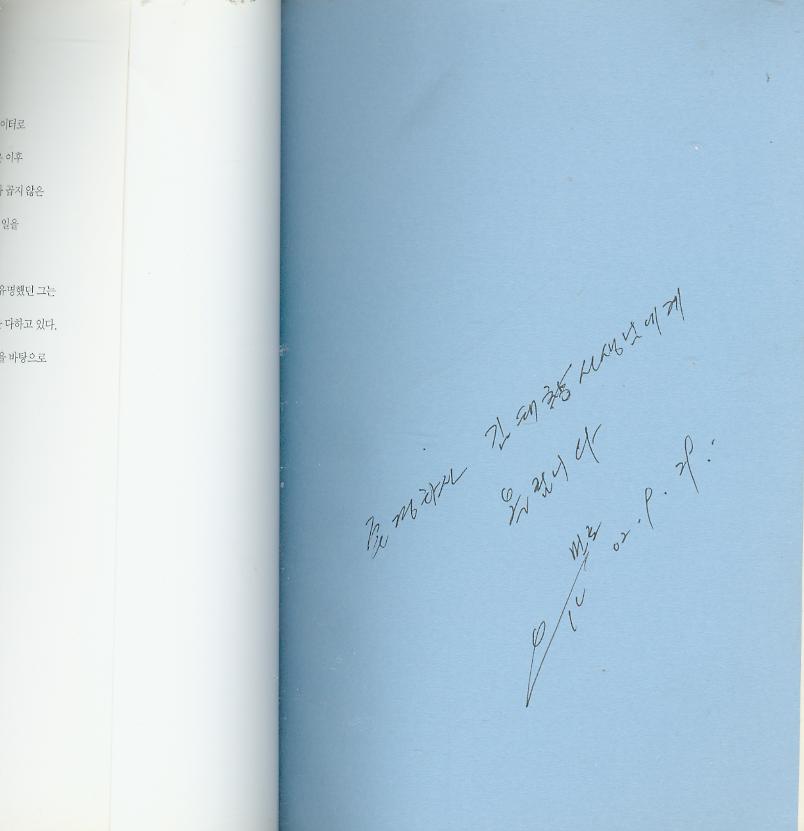 이터로
이후
곱지 않은
일을
유명했던 그는
다하고 있다.
을 바탕으로
존경하신 김태 선생님에게
올립니다
02. 9.